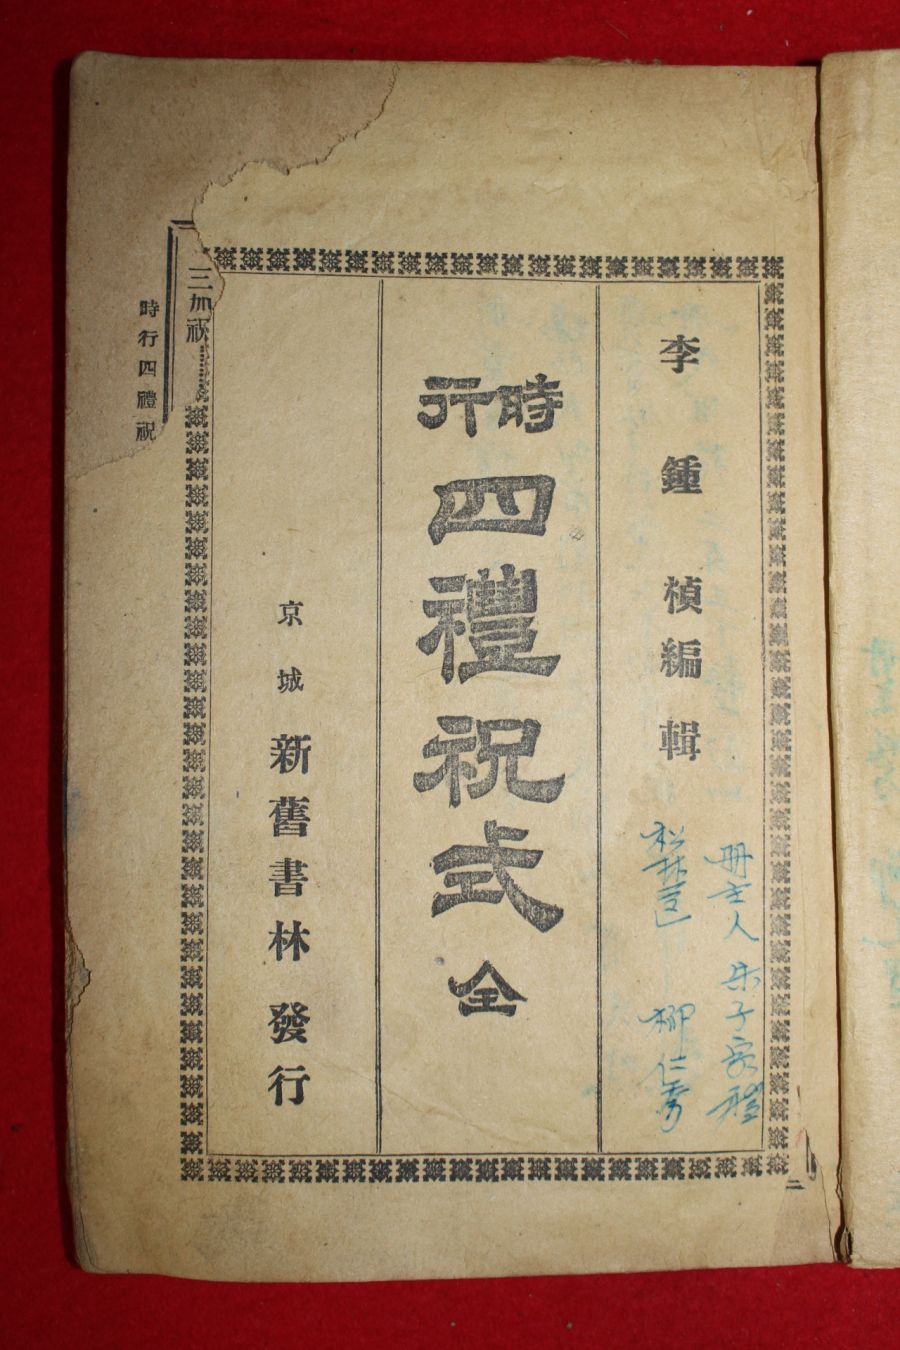 李鍾楨編輯
冊主人 朱子家禮
柳仁秀
時行
四禮祝式 全
京城 新舊書林 發行
三加祝
時行四禮祝
二